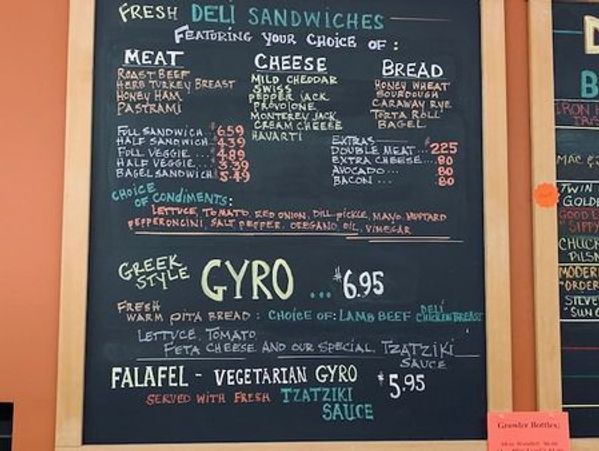 FRESH DELI SANDWICHES
FEATURING YOUR CHOICE OF:
MEAT
ROAST BEEF
HERB TURKEY BREAST
HONEY HAM
PASTRAMI
CHEESE
MILD CHEDDAR
SWISS
PEPPER JACK
PROVOLONE
MONTEREY JACK
CREAM CHEESE
HAVARTI
BREAD
HONEY WHEAT
SOURDOUGH
CARAWAY RYE
TORTA ROLL
BAGEL
FULL SANDWICH.. $6.59
HALF SANDWICH.. 4.39
FULL VEGGIE... $4.89
HALF VEGGIE... $3.39
BAGEL SANDWICH $5.49
EXTRAS
DOUBLE MEAT... $2.25
EXTRA CHEESE... .80
AVOCADO... .80
BACON... .80
CHOICE OF CONDIMENTS:
LETTUCE, TOMATO, RED ONION, DILL PICKLE, MAYO, MUSTARD
PEPPERONCINI, SALT PEPPER, OREGANO OIL, VINEGAR
GREEK STYLE GYRO ... $6.95
FRESH WARM PITA BREAD: CHOICE OF: LAMB BEEF DELI CHICKEN BREAST
LETTUCE, TOMATO
FETA CHEESE AND OUR SPECIAL TZATZIKI SAUCE
FALAFEL - VEGETARIAN GYRO $5.95
SERVED WITH FRESH TZATZIKI SAUCE
D
B
IRON H
MAC &
TWIN
GOLDE
GOOD L
"SIPPY
CHUCK
PILSN
MODER
"ORDER
STEVE
"SUN G
Growler Bottles: